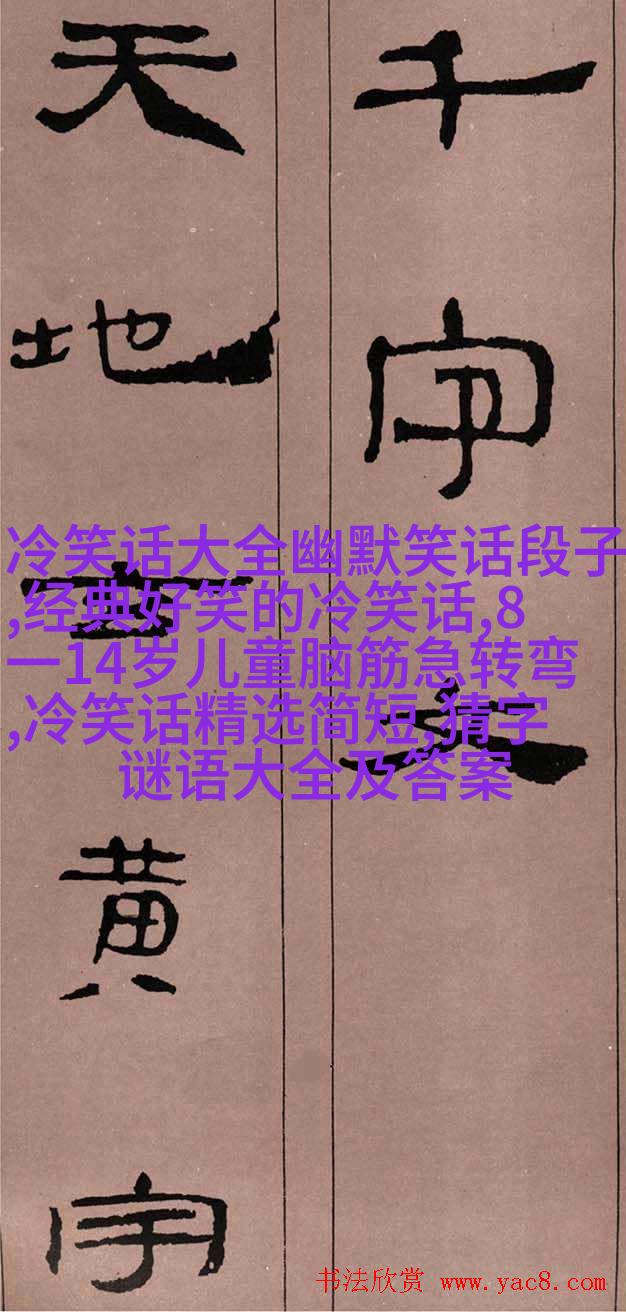 千字文
天地玄黄宇
冷笑话大全幽默笑话段子
,经典好笑的冷笑话,8
一14岁儿童脑筋急转弯
,冷笑话精选简短,猜字
谜语大全及答案
书法欣赏 www.yac8.com